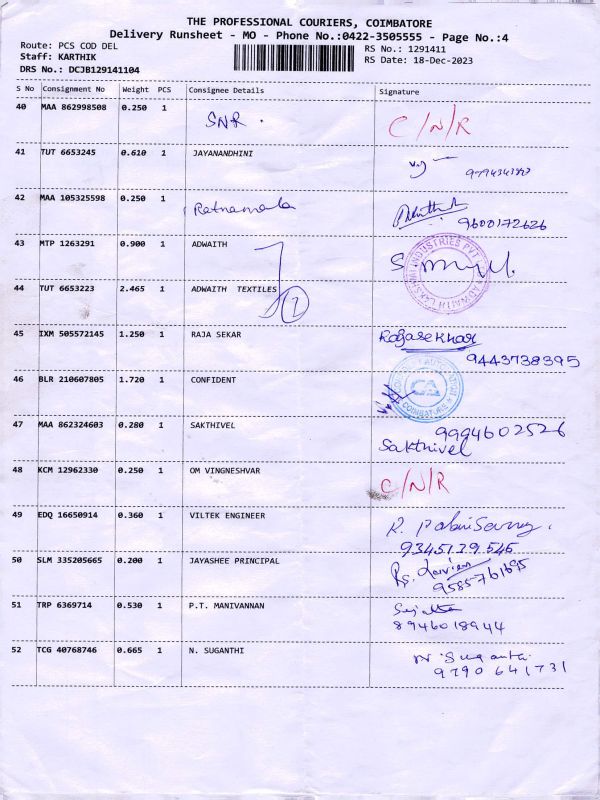 THE PROFESSIONAL COURIERS, COIMBATORE
Delivery Runsheet - MO - Phone No.:0422-3505555 - Page No.:4
Route: PCS COD DEL
RS No.: 1291411
Staff: KARTHIK
RS Date: 18-Dec-2023
DRS No.: DCJB129141104
S No Consignment No Weight PCS Consignee Details Signature
40 MAA 862998508 0.250 1 SNR. C/N/R
41 TUT 6653245 0.610 1 JAYANANDHINI
42 MAA 105325598 0.250 1 Ratnamala
9600172626
43 MTP 1263291 0.900 1 ADWAITH
44 TUT 6653223 2.465 1 ADWAITH TEXTILES
45 IXM 505572145 1.250 1 RAJA SEKAR Rajasekhar
9443738395
46 BLR 210607805 1.720 1 CONFIDENT
CA
COIMBATORE
47 MAA 862324603 0.280 1 SAKTHIVEL 9994602526
Sakthivel
48 KCM 12962330 0.250 1 OM VINGNESHVAR C/N/R
49 EDQ 16650914 0.360 1 VILTEK ENGINEER
9345139546
50 SLM 335205665 0.200 1 JAYASHEE PRINCIPAL
9585761695
51 TRP 6369714 0.530 1 P.T. MANIVANNAN
8946018944
52 TCG 40768746 0.665 1 N. SUGANTHI N. Suganthi
9790 641731